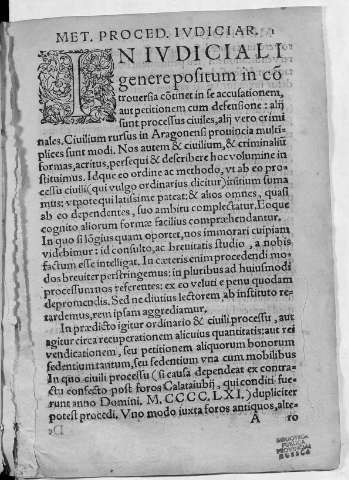 MET. PROCED. IVDICIAR. 1
IN IVDICIALI
genere positum in cō
trouersia cōtinet in se accusationem,
aut petitionem cum defensione: alij
sunt processus ciuiles, alij vero crimi
nales. Ciuilium rursus in Aragonensi prouincia multi-
plices sunt modi. Nos autem & ciuilium, & criminaliū
formas, ac ritus, persequi & describere hoc volumine in
stituimus. Idque eo ordine ac methodo, vt ab eo pro-
cessu ciuili (qui vulgo ordinarius dicitur) initium suma
mus: vtpote qui latissime pateat: & alios omnes, quasi
ab eo dependentes, suo ambitu complectatur. Eoque
cognito aliorum formæ facilius compræhendantur.
In quo si lōgius quam oportet, nos immorari cuipiam
videbimur: id consulto, ac breuitatis studio, a nobis
factum esse intelligat. In cæteris enim procedendi mo-
dos breuiter perstringemus: in pluribus ad huiusmodi
processum nos referentes: ex eo veluti e penu quodam
depromendis. Sed ne diutius lectorem ab instituto re-
tardemus, rem ipsam aggrediamur.
In prædicto igitur ordinario & ciuili processu, aut
agitur circa recuperationem alicuius quantitatis: aut rei
vendicationem, seu petitionem aliquorum bonorum
sedentium tantum, seu sedentium vna cum mobilibus
In quo ciuili processu (si causa dependeat ex contra-
ctu confecto post foros Calataiubij, qui conditi fue-
runt anno Domini. M. CCCC. LXI.) dupliciter
potest procedi. Vno modo iuxta foros antiquos, alte-
A ro
BIBLIOTECA
PUBLICA
PROVINCIAL
HUESCA